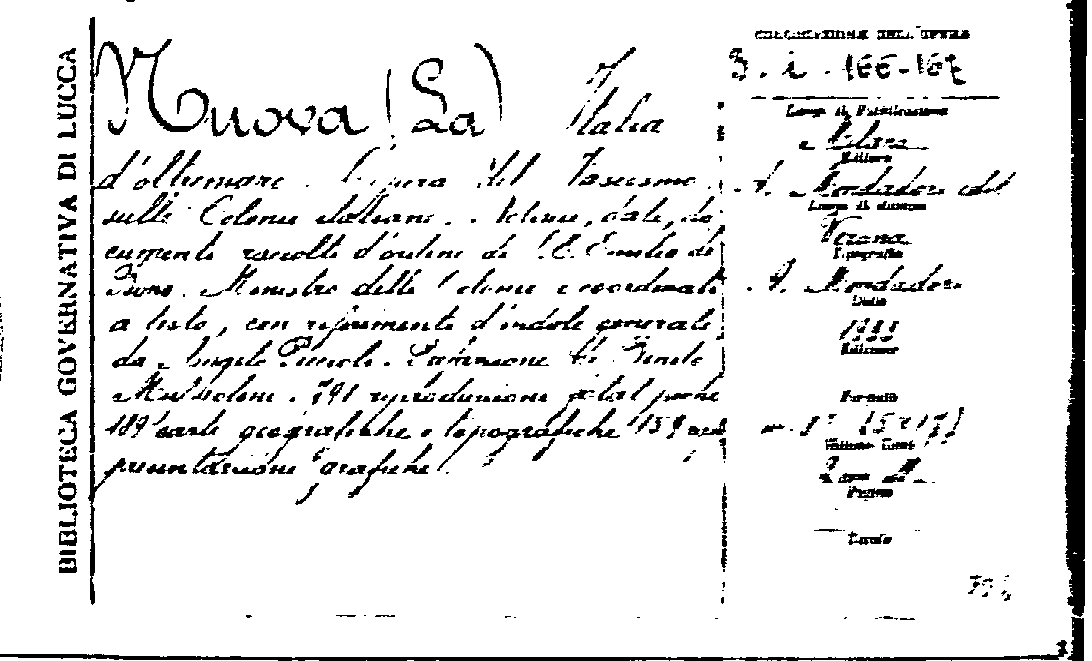 BIBLIOTECA GOVERNATIVA DI LUCCA
Nuova (La) Italia
d'oltremare. L'opera del Fascismo
sulle Colonie italiane. Notizie, date, do
cumenti raccolti d'ordine di S.E. Emilio de
Bono. Ministro delle Colonie e coordinati
a testo, con riferimenti d'indole generale
da Angelo Piccioli. Prefazione di Benito
Mussolini. 791 riproduzioni
189 carte geografiche e topografiche 159 rap
presentazioni grafiche.
COLLOCAZIONE DELL'OPERA
3. i. 166-167
Luogo di Pubblicazione
Milano
Editore
A. Mondadori edit
Luogo di stampa
Verona
Tipografia
A. Mondadori
Data
Edizione
Formato
Volume
Pagine
Tavole